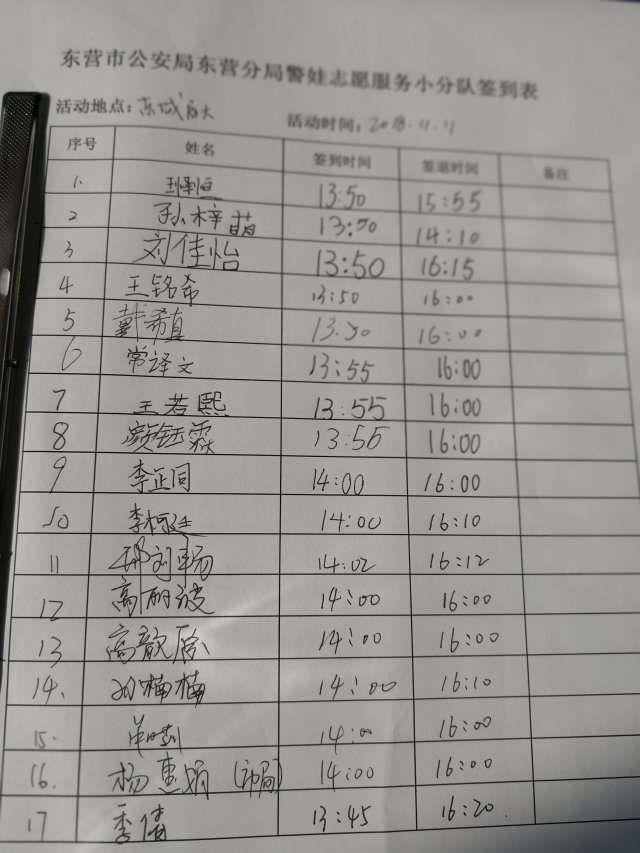 东营市公安局东营分局警娃志愿服务小分队签到表
活动地点: 东城 活动时间: 2018.4.
序号 姓名 签到时间 签退时间 备注
1. 13:50 15:55
2 孙梓萌 13:50 14:10
3 刘佳怡 13:50 16:15
4 王铭希 13:50 16:00
5 戴希直 13:50 16:00
6 常译文 13:55 16:00
7 王若熙 13:55 16:00
8 颜钰霖 13:56 16:00
9 李正同 14:00 16:00
10 李柯廷 14:00 16:10
11 14:02 16:12
12 高丽波 14:00 16:00
13 高歆原 14:00 16:00
14. 孙楠楠 14:00 16:10
15. 14:00 16:00
16. 杨惠娟 (市局) 14:00 16:00
17 季倩 13:45 16:20.